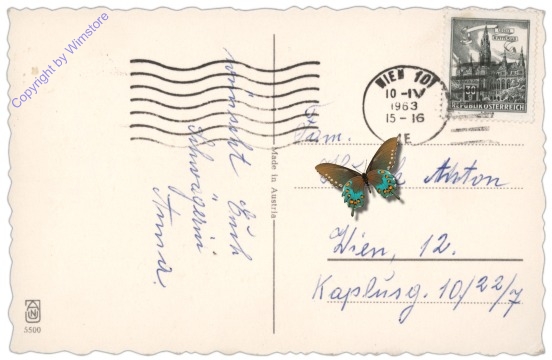 Copyright by Wimstore
wünscht Euch
Schwägerin
Anna.
Made in Austria
5500
WIEN 101
10-IV
1963
15-16
1E
WIEN
RATHAUS
REPUBLIK ÖSTERREICH
Fam.
Anton
Wien, 12.
10/22/7